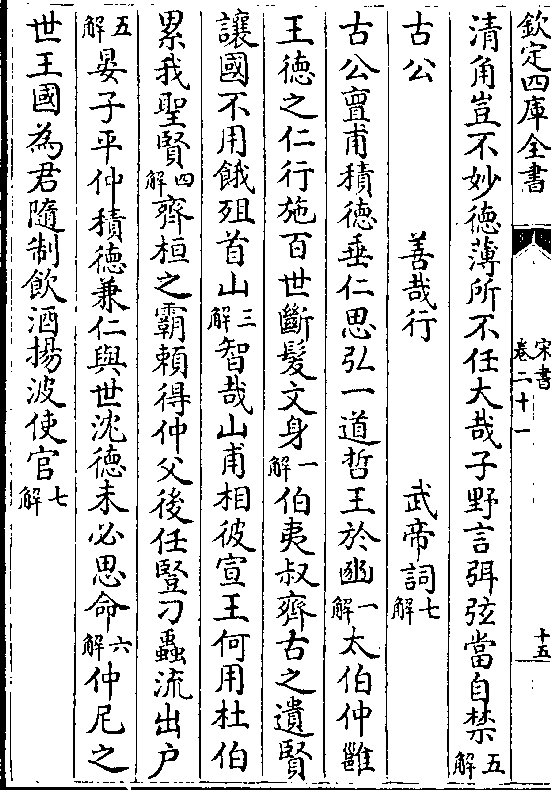 欽定四庫全書
宋書
卷二十一
十五
清角豈不妙德薄所不任大哉子野言弭弦當自禁五解
古公　善哉行　武帝詞七解
古公亶甫積德垂仁思弘一道哲王於豳一解太伯仲雍
王德之仁行施百世斷髮文身一解伯夷叔齊古之遺賢
讓國不用餓殂首山三解智哉山甫相彼宣王何用杜伯
累我聖賢四解齊桓之霸頼得仲父後任豎刁蟲流出戶
五解晏子平仲積德兼仁與世沈德未必思命六解仲尼之
世王國為君隨制飲酒揚波使官七解